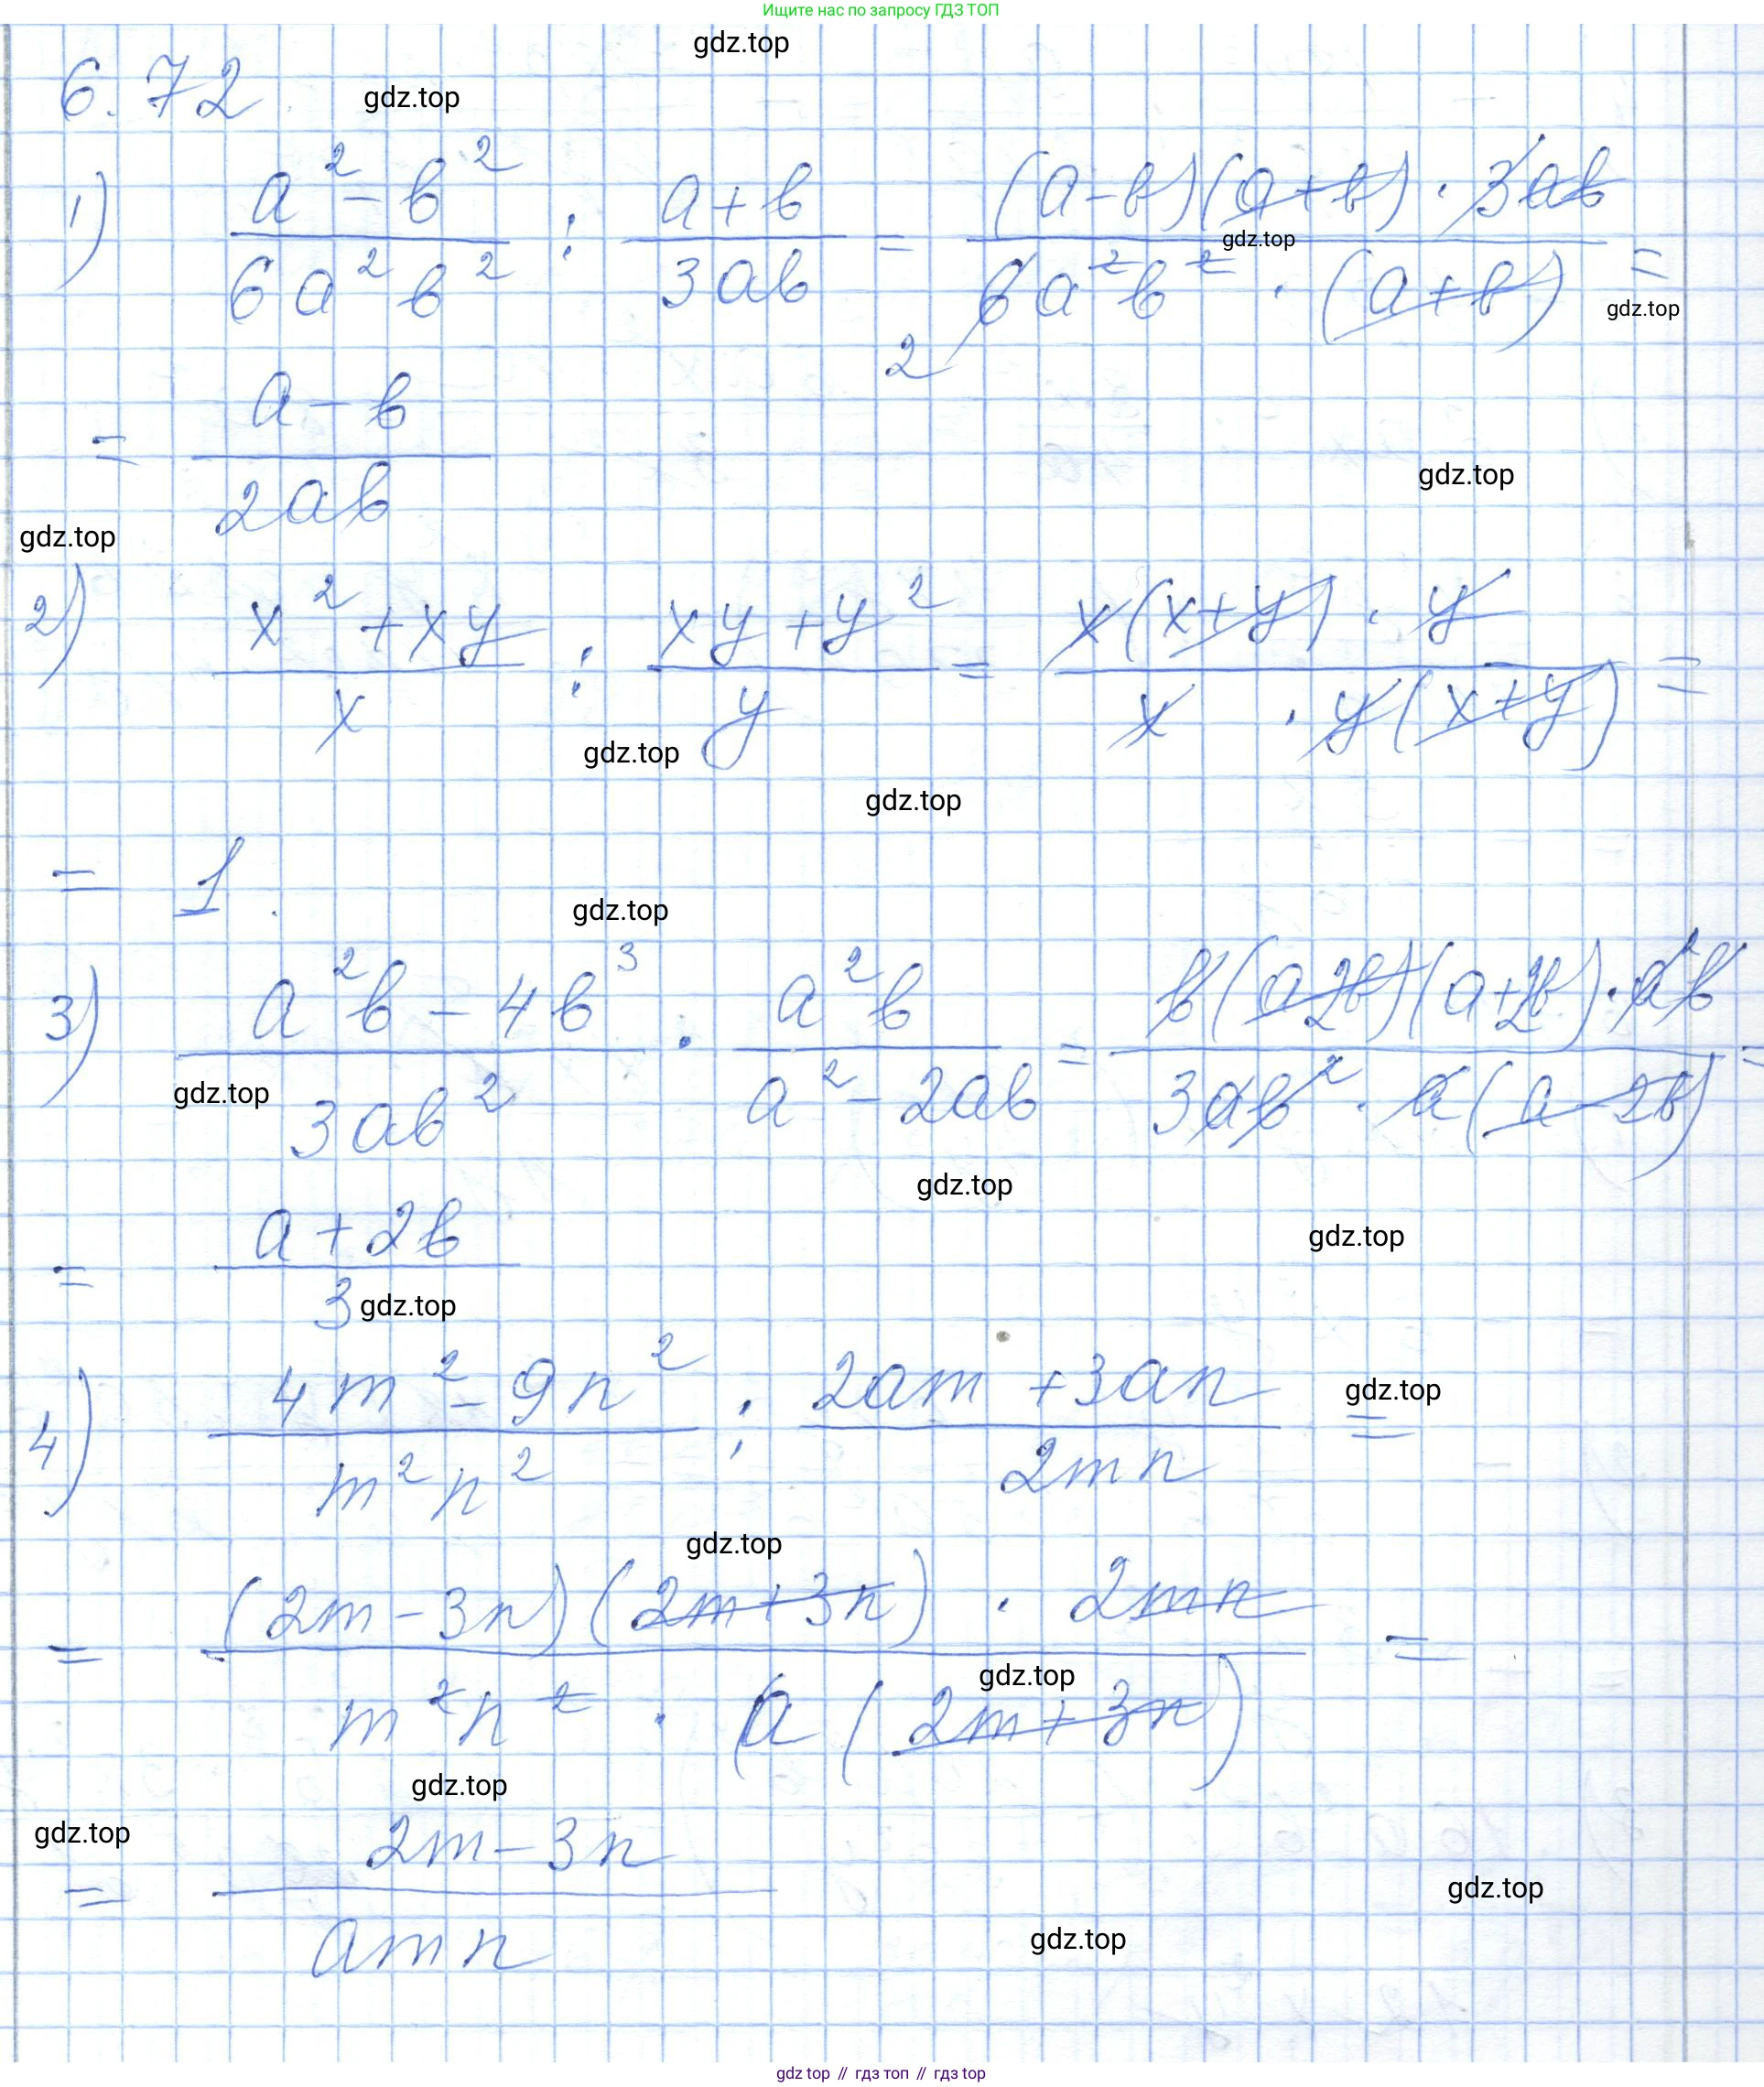 Ищите нас по запросу ГДЗ ТОП
gdz.top
6.72. gdz.top
1) (a² - b²)/(6a²b²) : (a + b)/(3ab) = ((a - b)(a + b) · 3ab)/(6a²b² · (a + b)) =
2
gdz.top
gdz.top
= (a - b)/(2ab)
gdz.top
gdz.top
2) (x² + xy)/x : (xy + y²)/y = (x(x + y) · y)/(x · y(x + y)) =
gdz.top
gdz.top
= 1.
gdz.top
3) (a²b - 4b³)/(3ab²) · (a²b)/(a² - 2ab) = (b(a 2b)(a + 2b) · a²b)/(3ab² · a(a - 2b)) =
gdz.top
gdz.top
= (a + 2b)/3
gdz.top
gdz.top
4) (4m² - 9n²)/(m²n²) : (2am + 3an)/(2mn) =
gdz.top
gdz.top
= ((2m - 3n)(2m + 3n) · 2mn)/(m²n² · a(2m + 3n)) =
gdz.top
gdz.top
gdz.top
= (2m - 3n)/(amn)
gdz.top
gdz.top
gdz top // гдз топ // гдз top